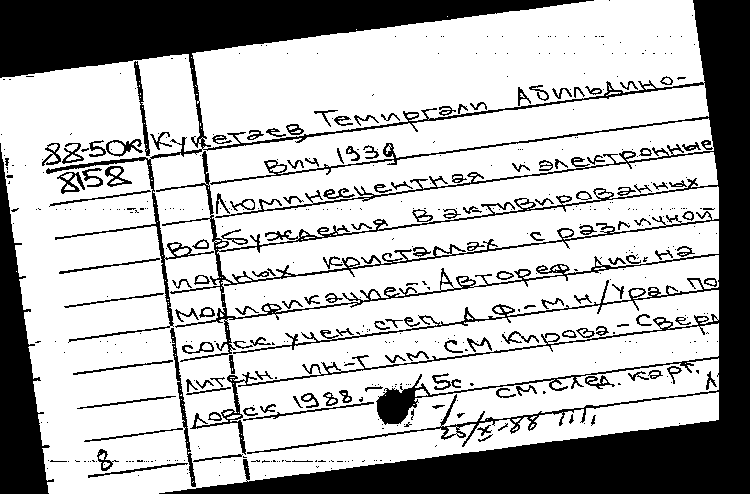 88-50к Кукетаев Темиргали Абильдино-
8158 вич, 1939
Люминесцентная и электронные
возбуждения в активированных
ионных кристаллах с различной
модификацией: Автореф. дис. на
соиск. учен. степ. д. ф.-м.н. / Урал. по
литехн. ин-т им. С.М Кирова - Сверд
ловск, 1988. - 45с.
см. след. карт.
25/X-88
8